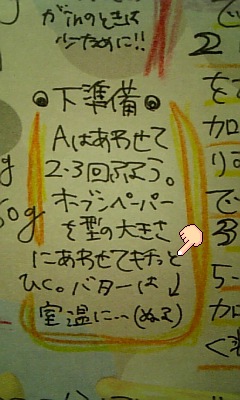 がitのときは
少ために!!
下準備
Aはあわせて
2-3回ふるう。
オーブンペーパー
を型の大きさ
にあわせてキチッと
ひく。バターは↓
室温に…(ぬる)
2
を
加
で
3
5
加
ぐ
50g
g